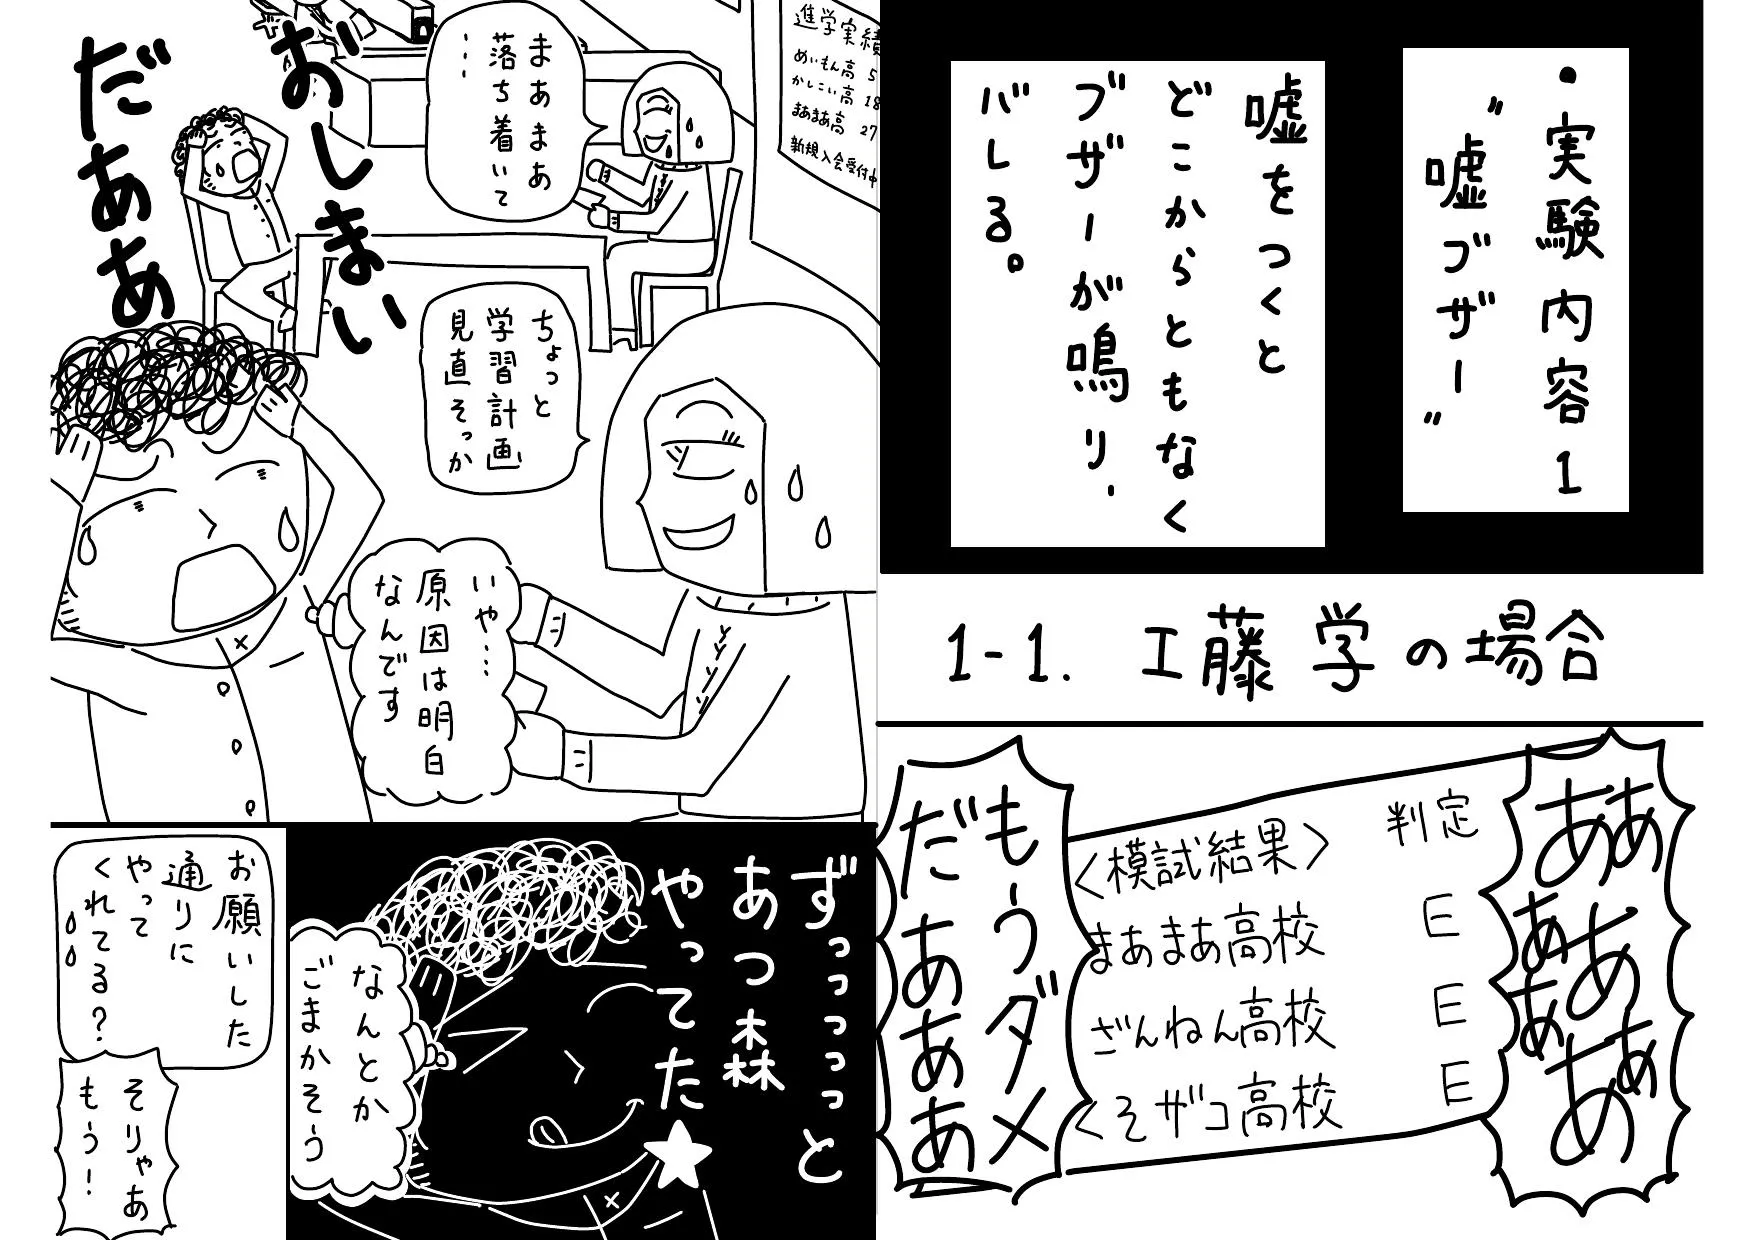 ・実験内容1
〝嘘ブザー〟
嘘をつくと
どこからともなく
ブザーが鳴り、
バレる。
1-1. 工藤 学の場合
ああああああああ
<模試結果> 判定
まあまあ高校 E
ざんねん高校 E
くそザコ高校 E
もうダメ
だあああ
進学実績
めいもん高 5
かしこい高 18
まあまあ高 27
新規入会受付中
まあまあ
落ち着いて
…
おしまい
だああ
ちょっと
学習計画
見直そっか
いや…
原因は明白
なんです
ずっっっっっと
あつ森
やってた★
なんとか
ごまかそう
お願いした
通りに
やって
くれてる?
そりゃあ
もう!